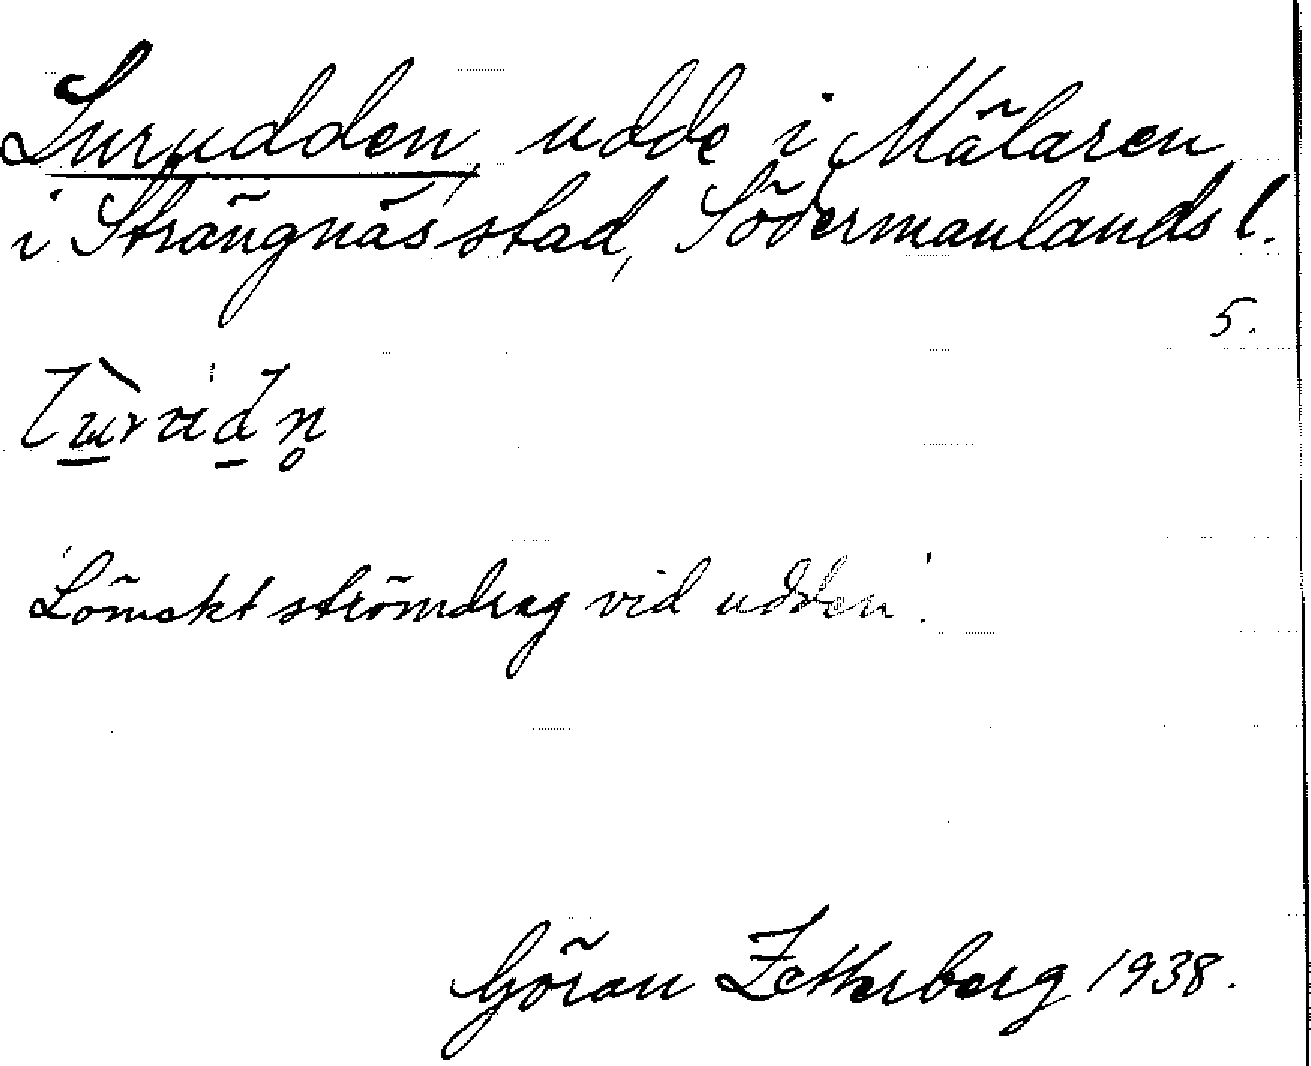 Lurudden, udde i Mälaren
i Strängnäs stad, Södermanlands l.
5.
'Lömskt strömdrag vid udden'.
Göran Zetherberg 1938.